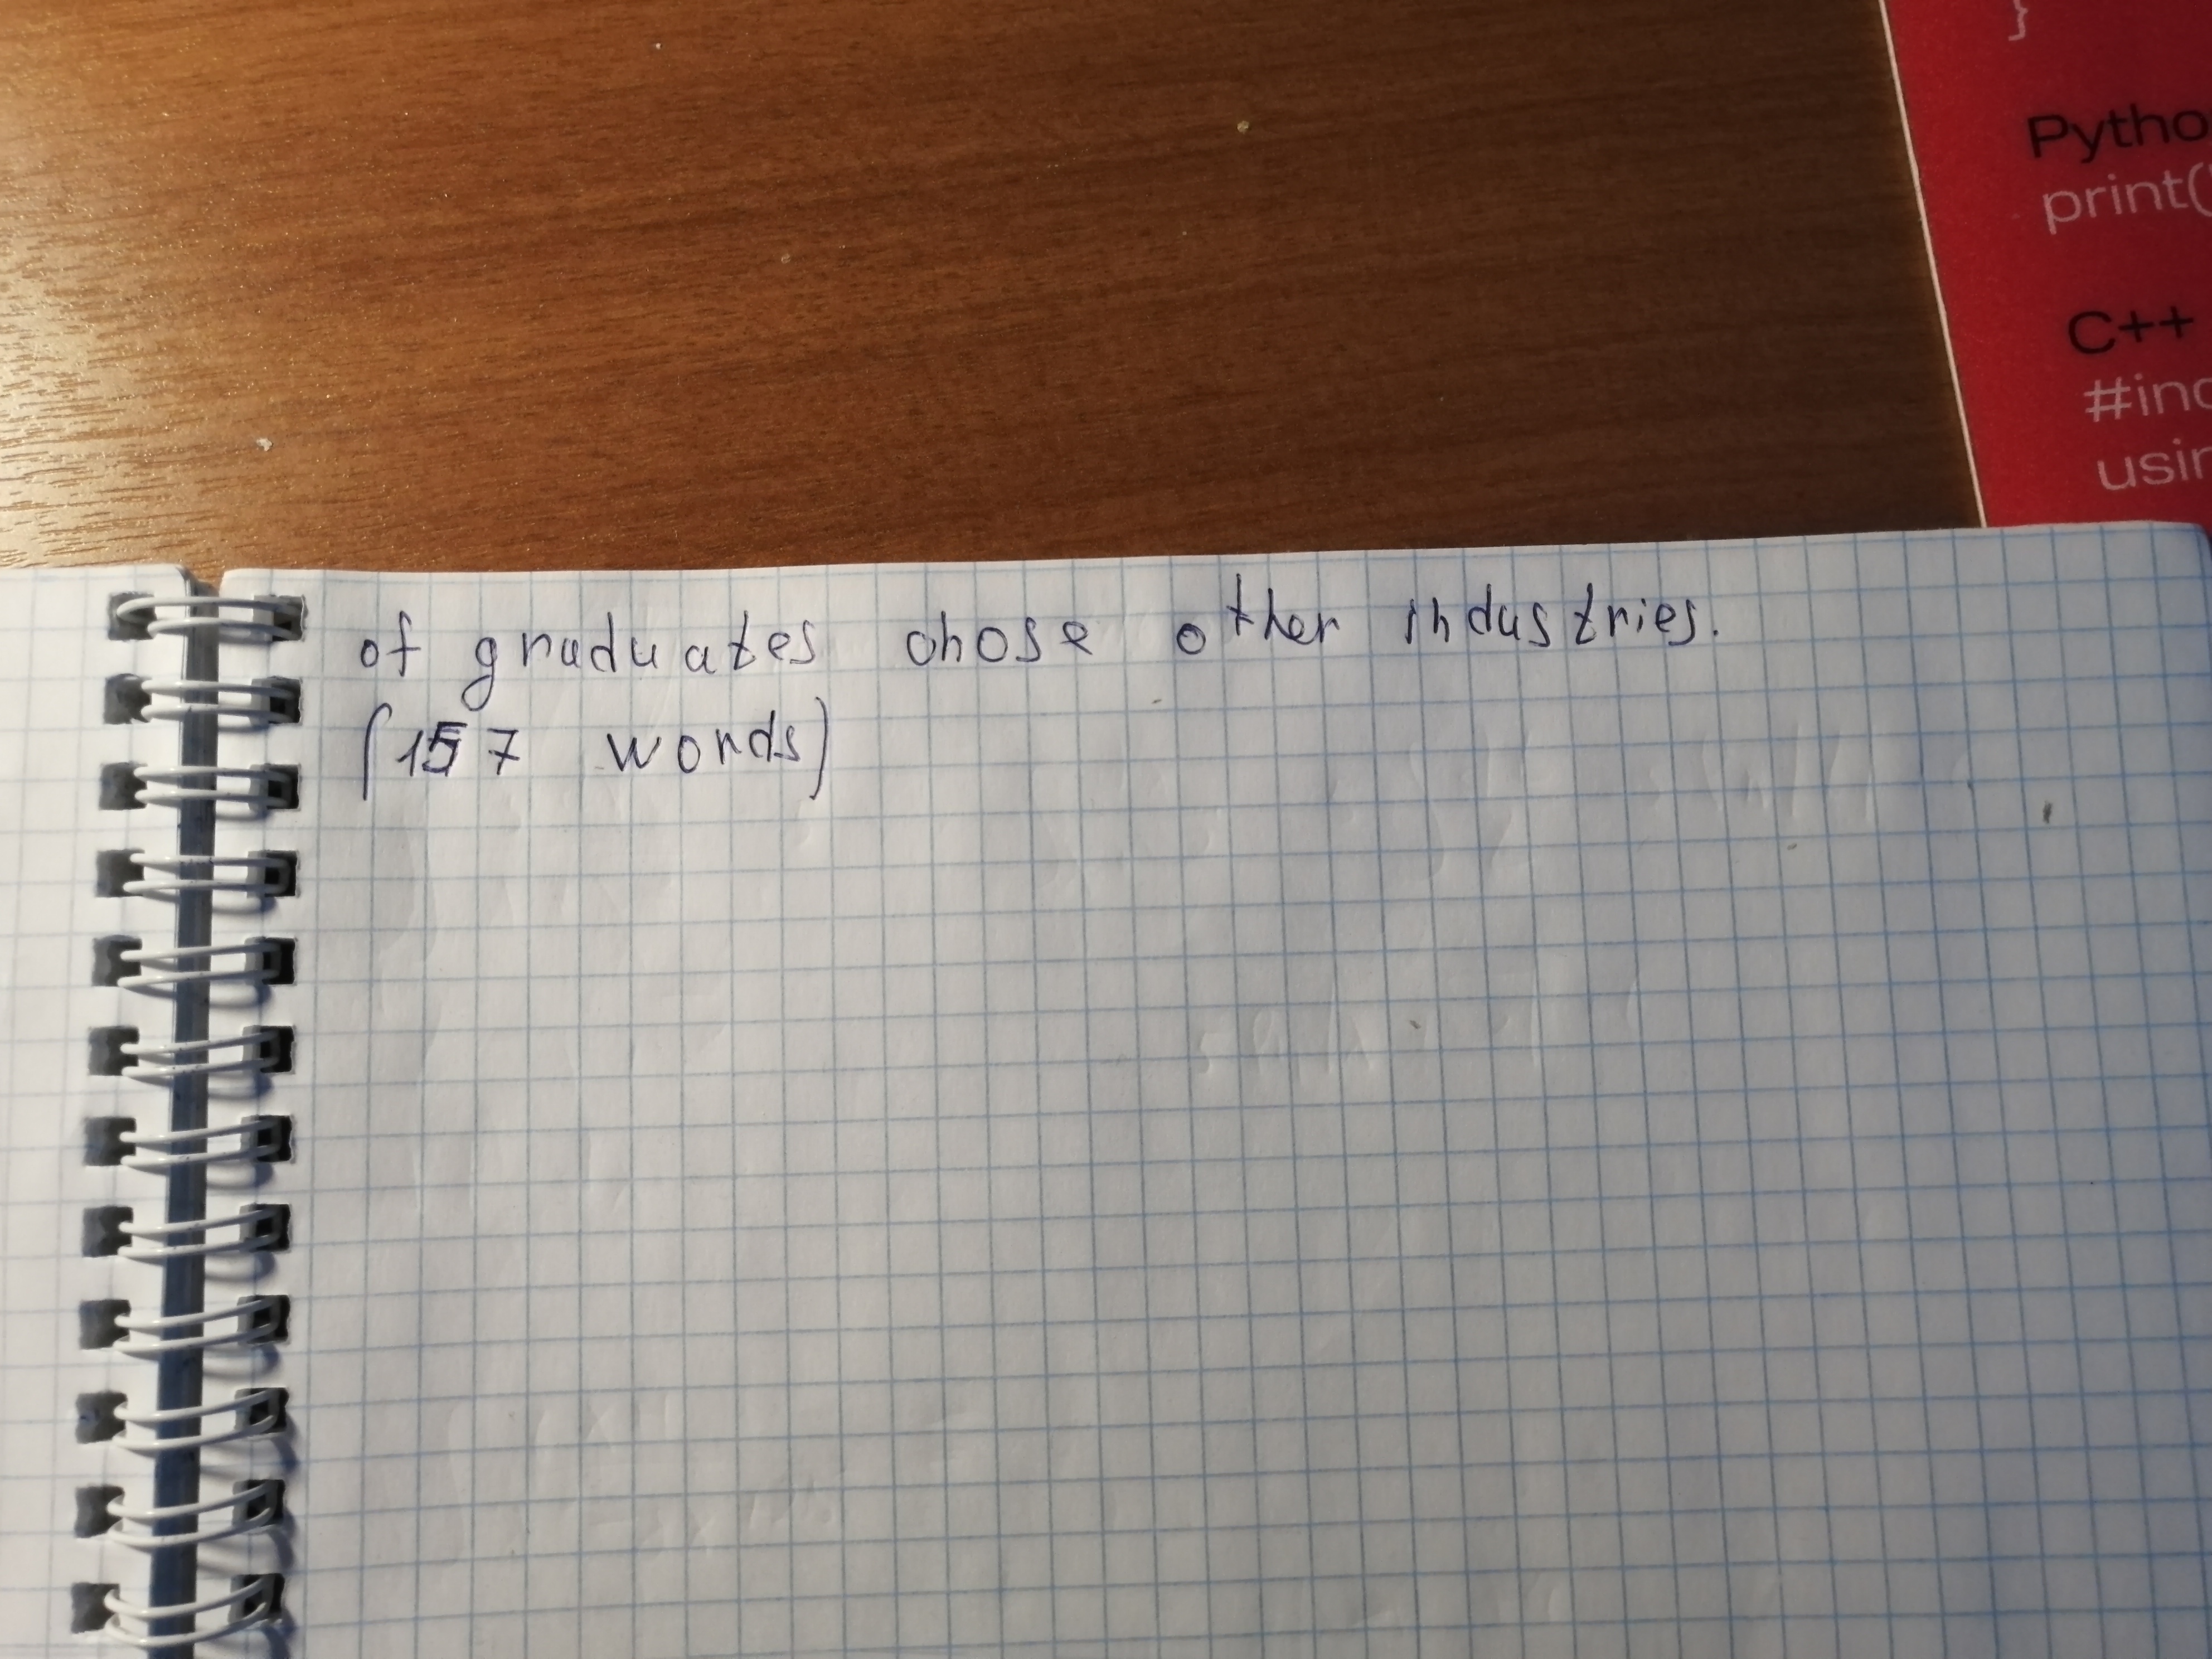 }
Pytho
print(
C++
#inc
usin
of graduates chose other industries.
(157 words)